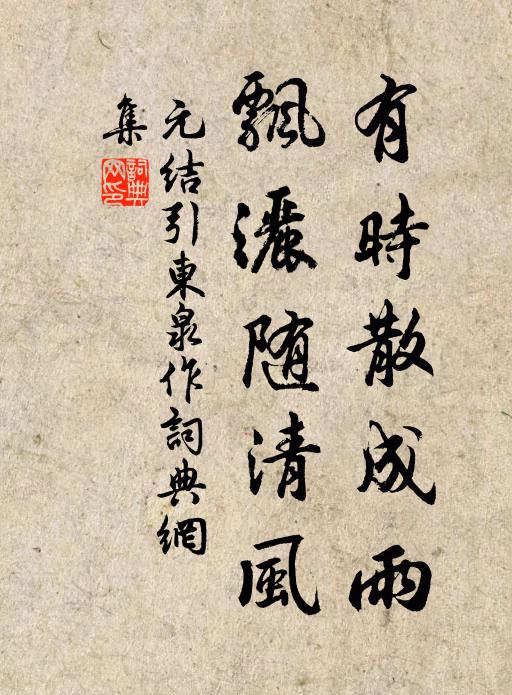 有時散成雨
飄灑随清風
元結引東泉作詞典網
集
詞典網印